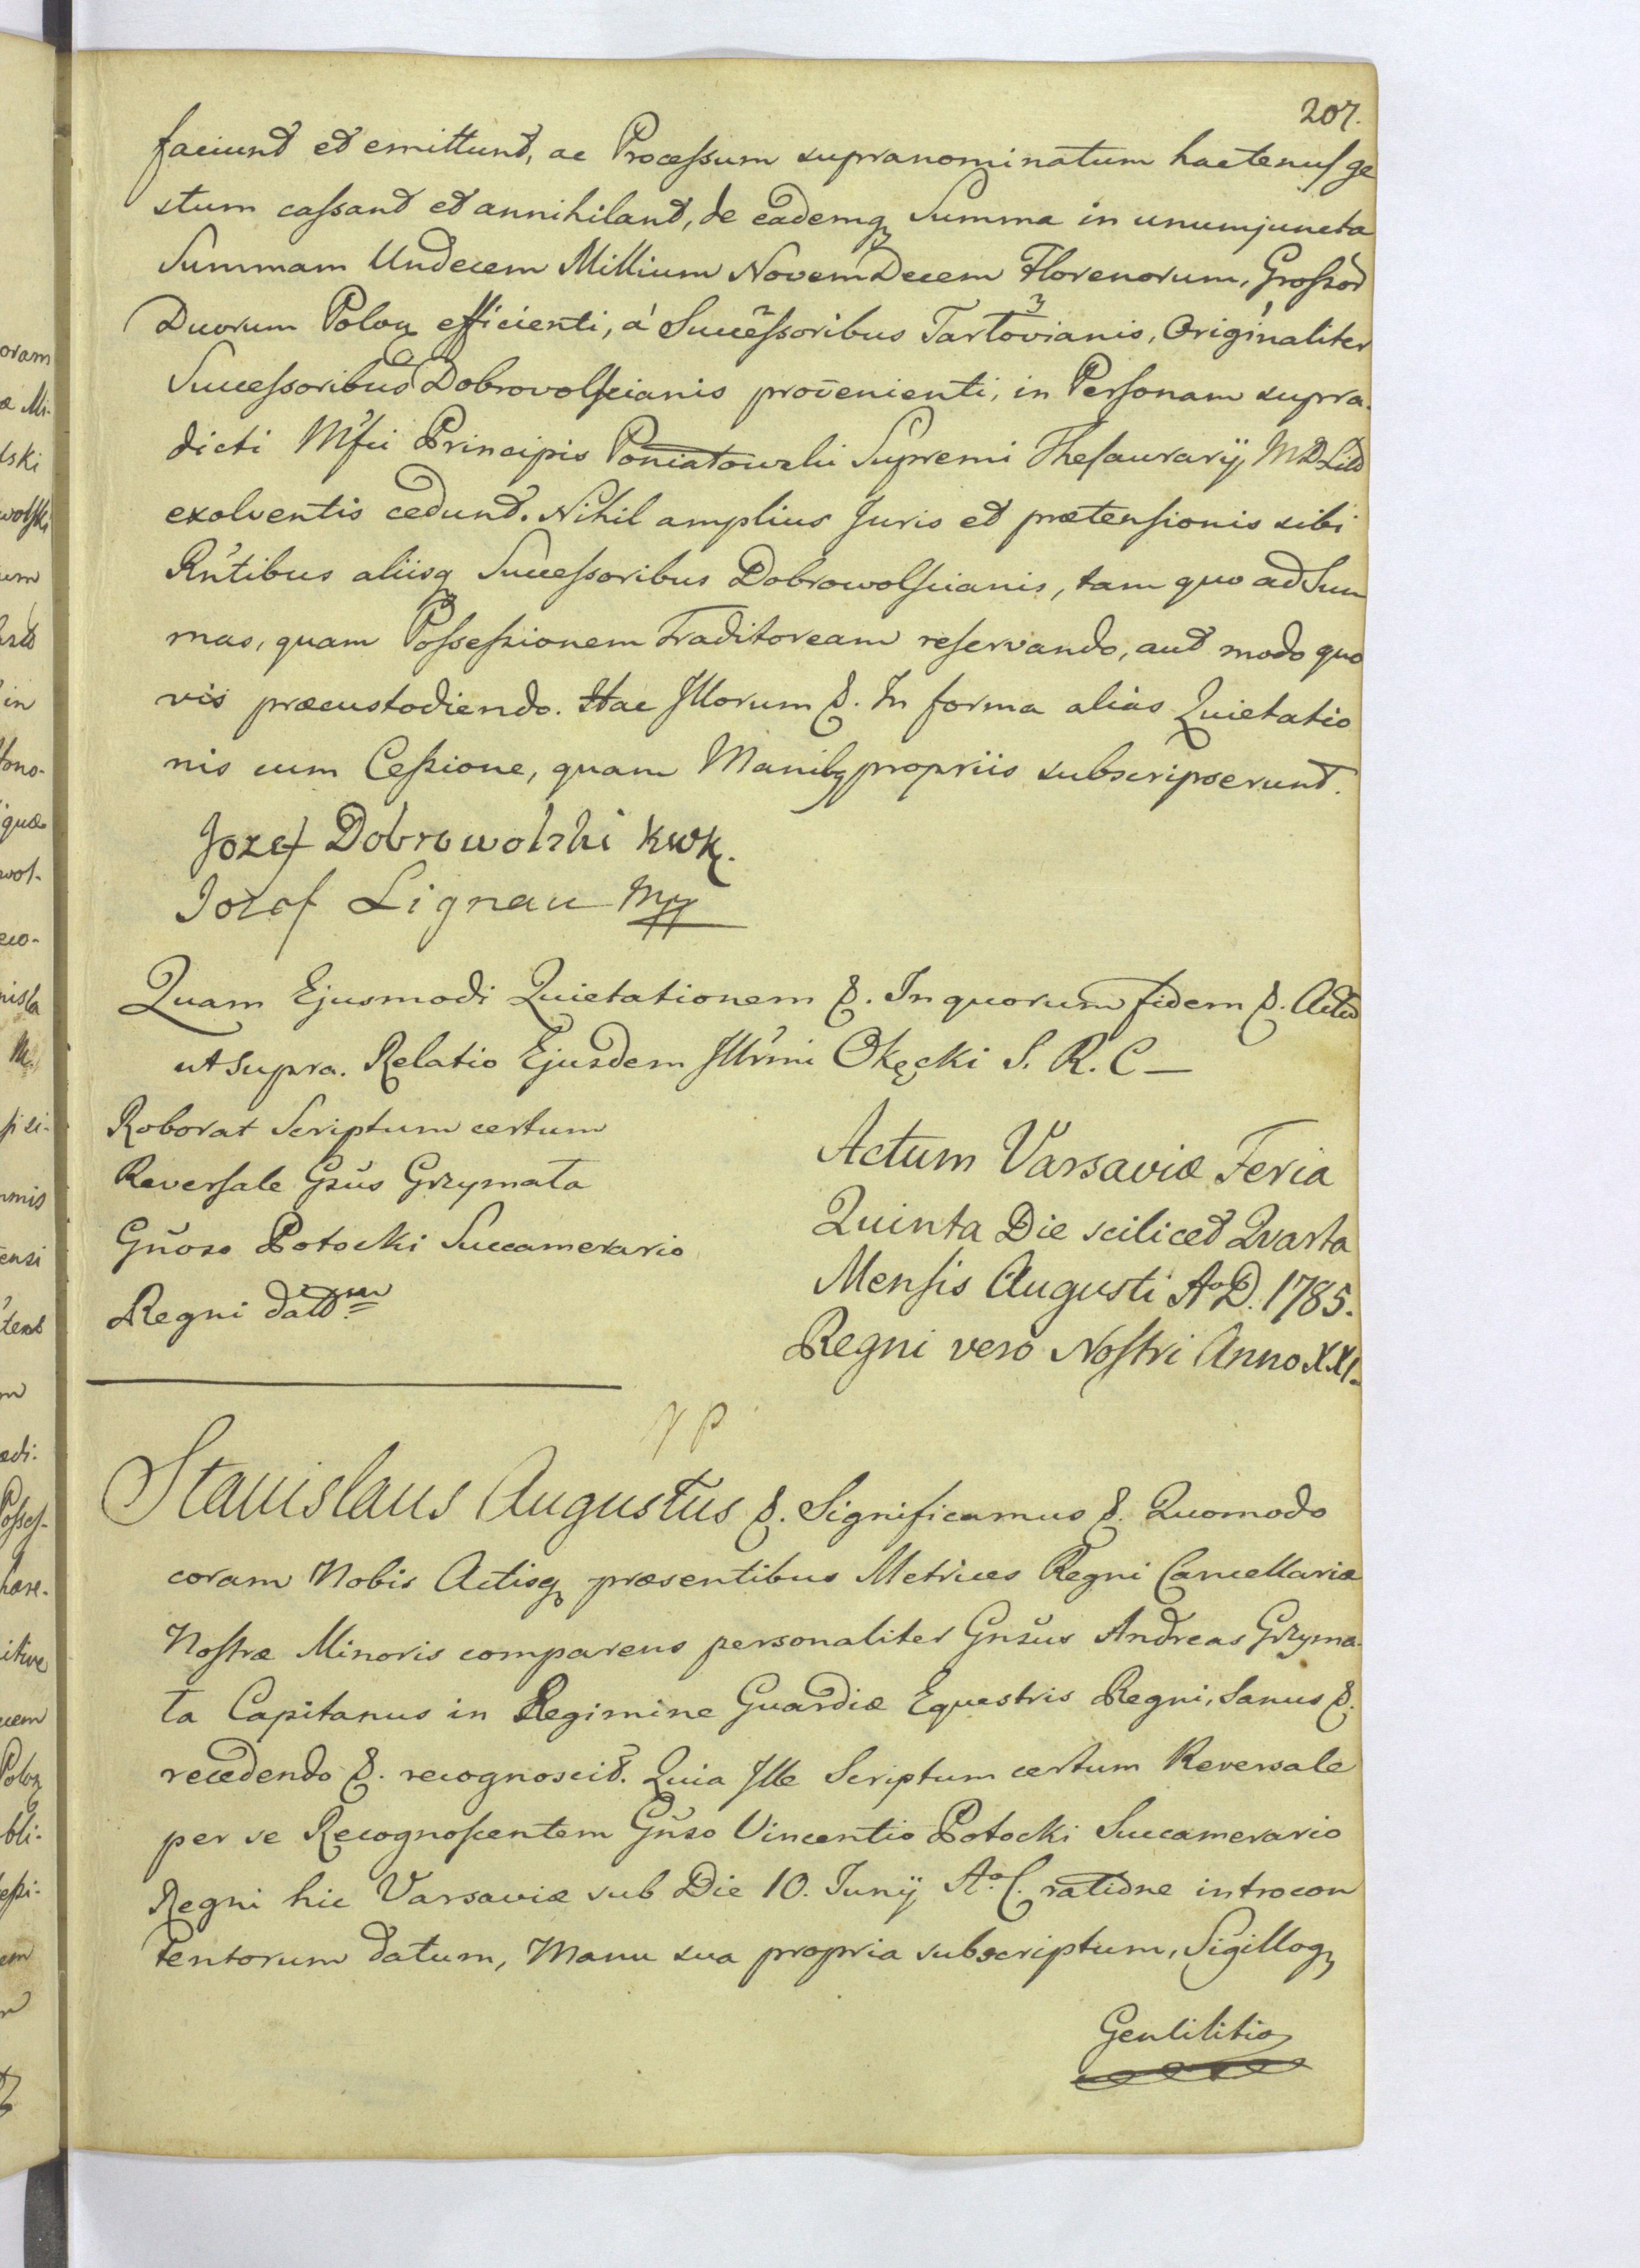 207.
faciunt et emittunt, ac Processum supranominatum hactenus ge
stum cassant et annihilant, de eademq Summa in unum juncta
Summam Undecem Millium Novem Decem Florenorum, Grossor
Duorum Polon efficienti, á Successoribus Tarłovianis, Originaliter
Successoribus Dobrovolscianis provenienti, in Personam supra-
dicti Mfci Principis Poniatowski Supremi Thesaurarij M D Litt
exolventis cedunt. Nihil amplius Juris et prætensionis sibi
Rntibus aliisq Successoribus Dobrowolscianis, tam quo ad Sum
mas, quam Possessionem Traditoream reservando, aut modo quo
vis præcustodiendo. Hac Illorum &. In forma alias Quietatio
nis cum Cessione, quam Manibq propriis subscripserunt.
Jozef Dobrowolski kwk.
Jozef Lignau mp
Quam Ejusmodi Quietationem &. In quorum fidem &. Actu
ut supra. Relatio Ejusdem Illrmi Okęcki S. R. C—
Roborat Scriptum certum
Reversale Gsus Grzymała
Gnoso Potocki Succamerario
Regni datt um
Actum Varsaviæ Feria
Quinta Die scilicet Qvarta
Mensis Augusti A° D. 1785.
Regni vero Nostri Anno XXI.
Stanislaus Augustus &. Significamus &. Quomodo
coram Nobis Actisq præsentibus Metrices Regni Cancellariæ
Nostræ Minoris comparens personaliter Gnsus Andreas Grzyma-
ła Capitanus in Regimine Guardiæ Equestris Regni, Sanus &.
recedendo &. recognoscit. Quia Ille Scriptum certum Reversale
per se Recognoscentem Gnso Vincentio Potocki Succamerario
Regni hic Varsaviæ sub Die 10. Junij A° C. ratione introcon
tentorum datum, Manu sua propria subscriptum, Sigilloq
Gentilitio